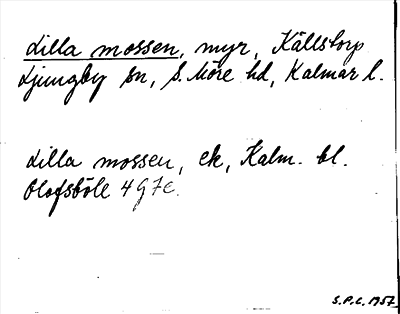 Lilla mossen, myr, Källstorp
Ljungby sn, S. Möre hd, Kalmar l.
Lilla mossen, ek, Kalm. bl.
Olofsböle 4 g 7 c.
S.P.L. 1957